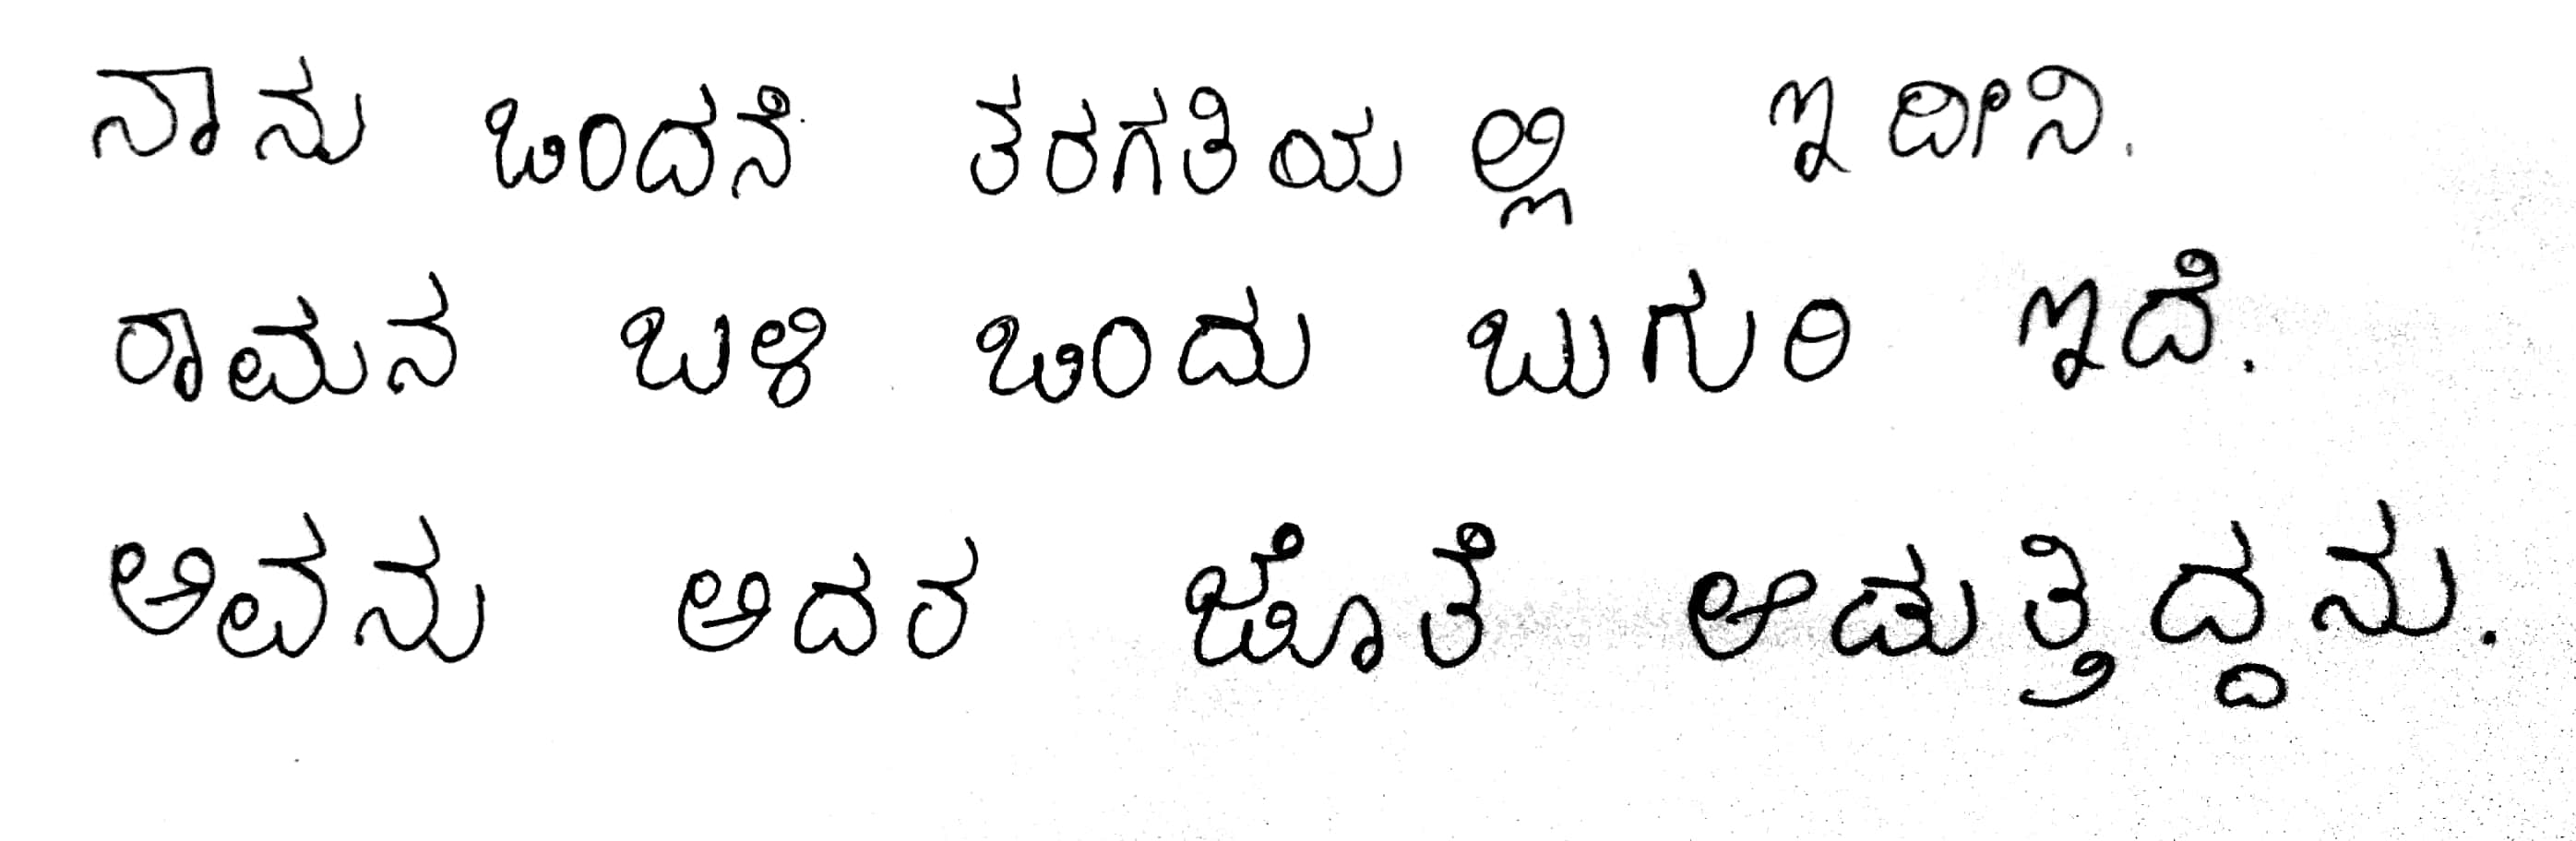 ನಾನು ಒಂದನೆ ತರಗತಿಯಲ್ಲಿ ಇದೀನಿ.
ರಾಮನ ಬಳಿ ಒಂದು ಬುಗುರಿ ಇದೆ.
ಅವನು ಅದರ ಜೊತೆ ಆಡುತ್ತಿದ್ದನು.